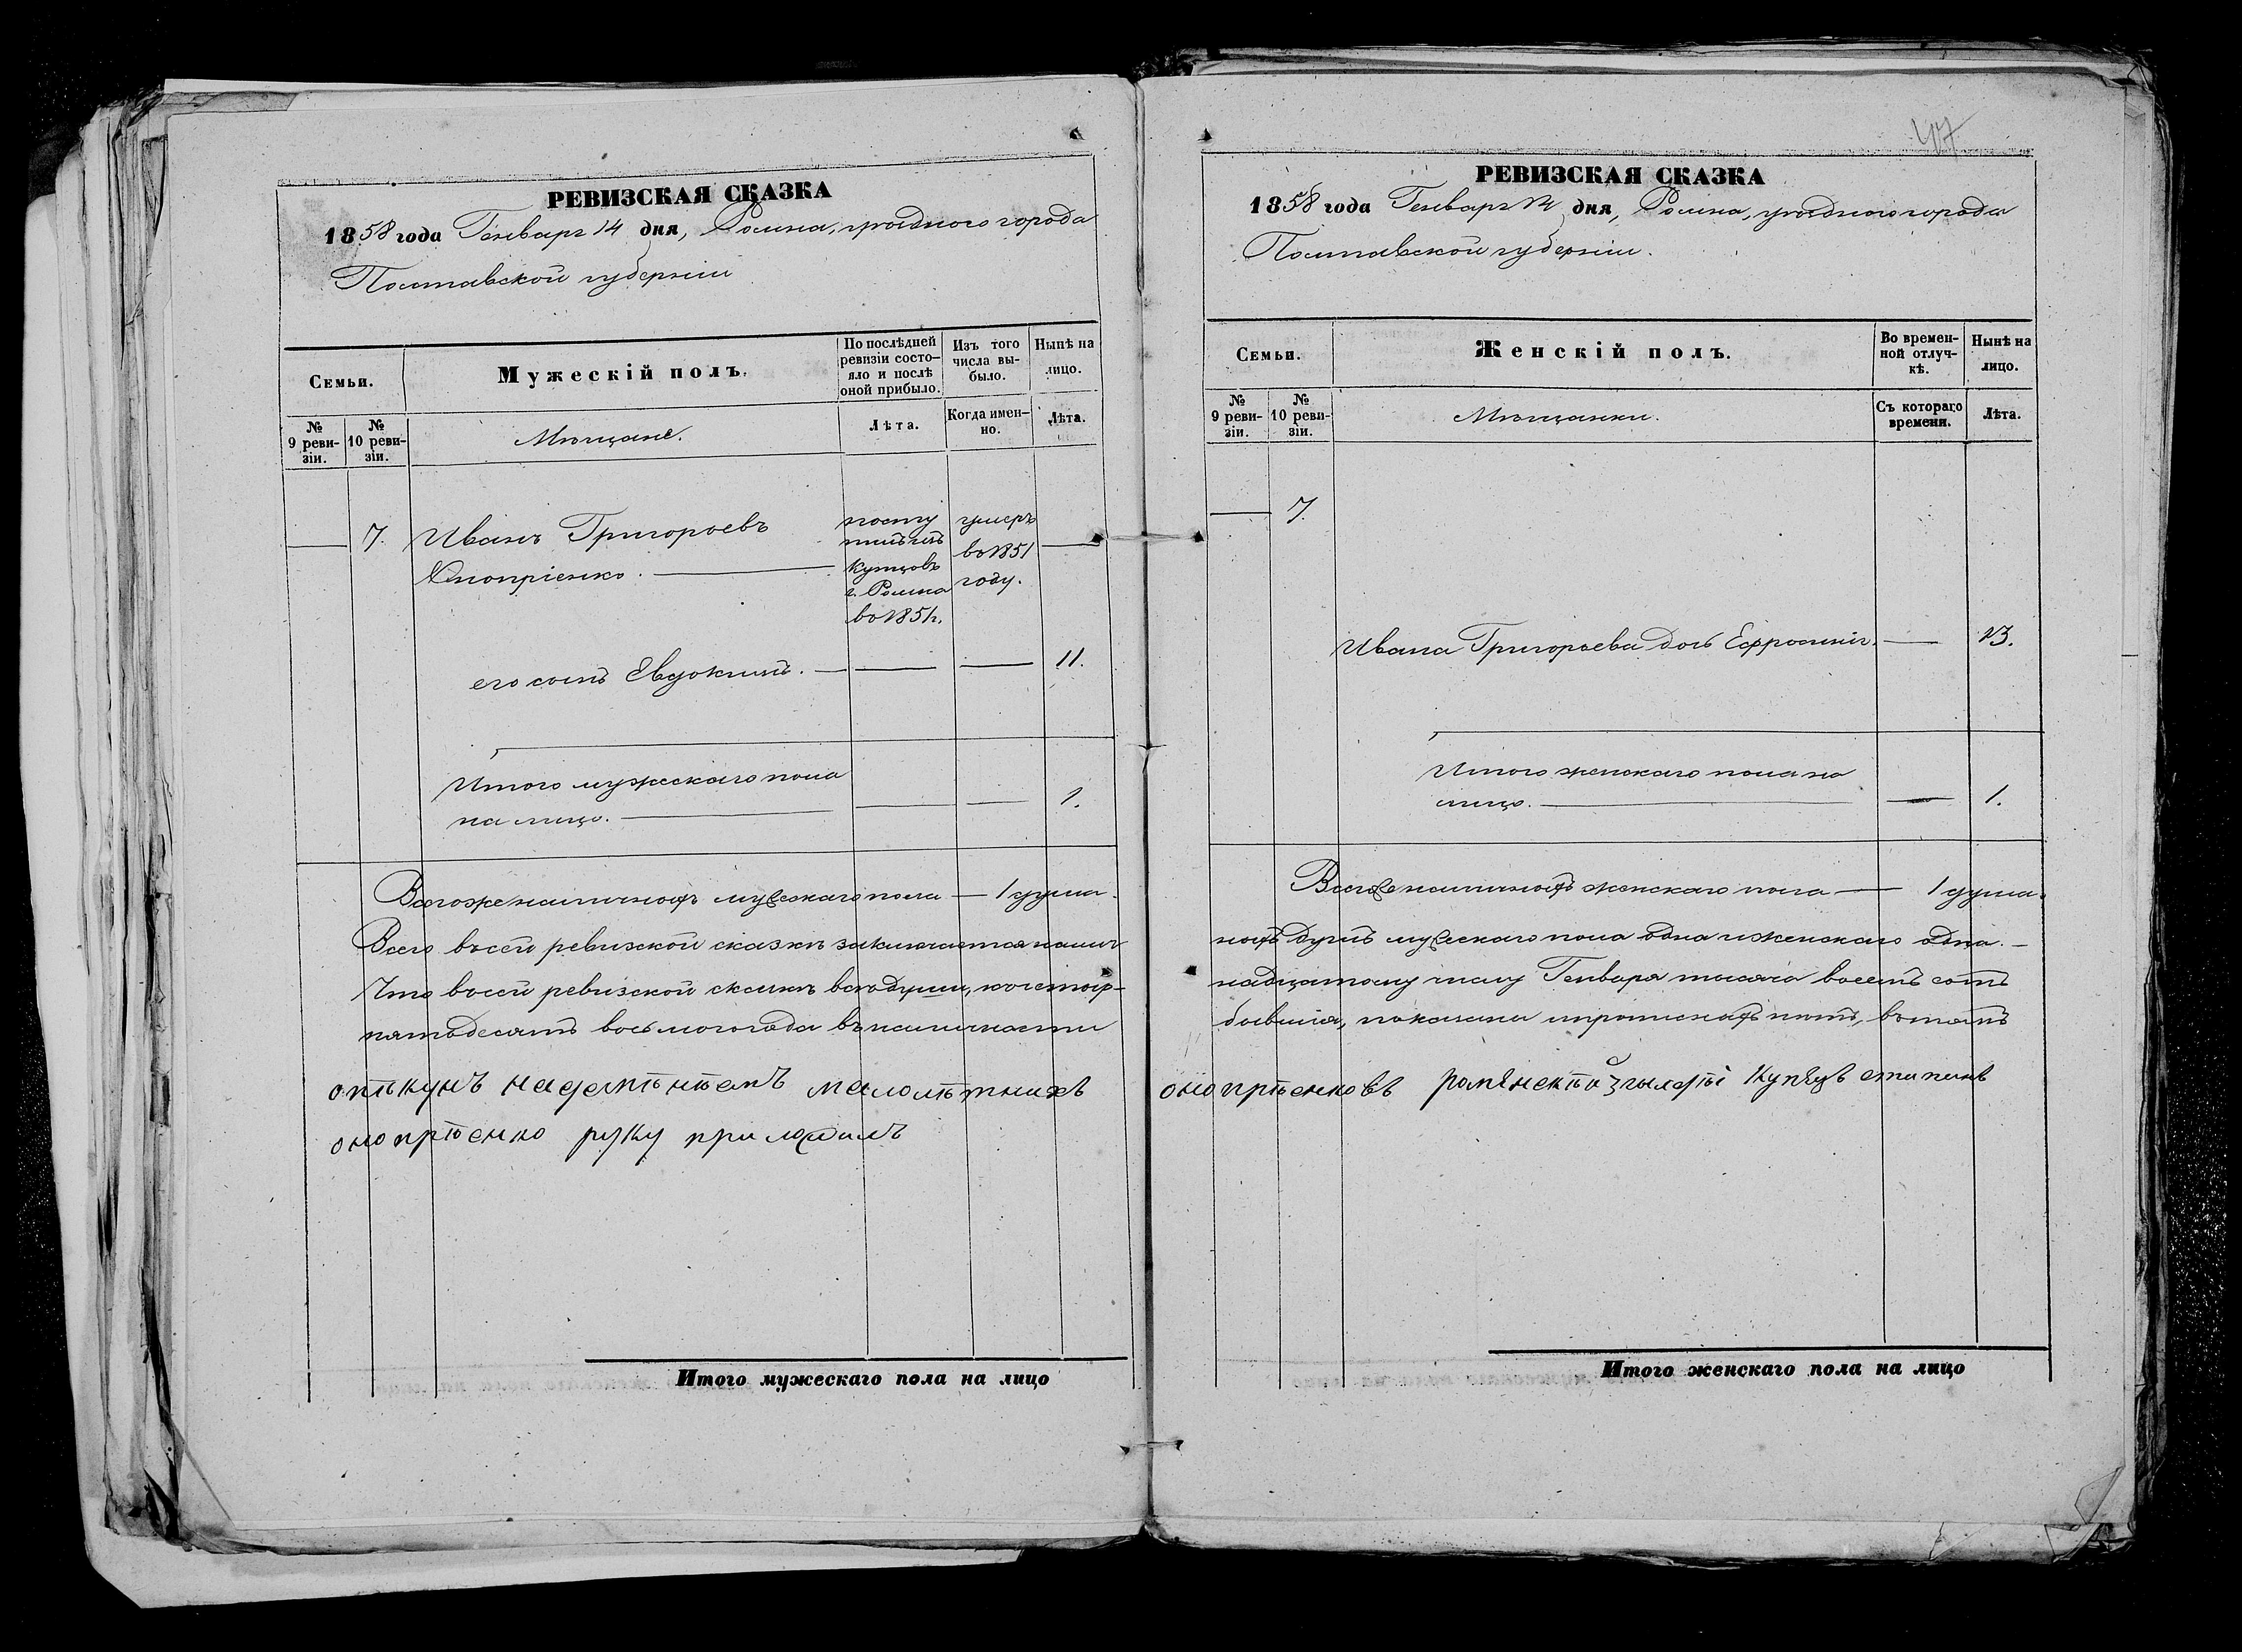 РЕВИЗСКАЯ СКАЗКА
1858 года Генваря 14 дня, Ромна, уѣзднаго города
Полтавской губерніи
Семьи.
Мужескій полъ.
По послѣдней ревизіи состояло и послѣ оной прибыло.
Изъ того числа выбыло.
Нынѣ на лицо.
№ 9 ревизіи.
№ 10 ревизіи.
Мѣщане.
Лѣта.
Когда именно.
Лѣта.
7.
Иванъ Григорьевъ
Оноприенко.
посту
купцовъ
г. Ромна
во 1851 г.
умеръ
во 1851
году.
его сынъ Евдокимъ.
11.
Итого мужескаго пола
на лицо.
1.
Всего же наличныхъ мужескаго пола — 1 душа.
Всего въ сей ревизской сказкѣ заключается налич
Что въ сей ревизской сказкѣ всѣ души, к четыр-
пятьдесятъ восьмого года въ наличности
опѣкунъ малолѣтнихъ
онопрѣенко руку приложилъ
Итого мужескаго пола на лицо
47
РЕВИЗСКАЯ СКАЗКА
1858 года Генваря 14 дня, Ромна, уѣзднаго города
Полтавской губерніи.
Семьи.
Женскій полъ.
Во временной отлучкѣ.
Нынѣ на лицо.
№ 9 ревизіи.
№ 10 ревизіи.
Мѣщанки.
Съ котораго времени.
Лѣта.
7.
Ивана Григорьева дочь Ефросинія.
13.
Итого женскаго пола на
лицо.
1.
Всего же наличныхъ женскаго пола — 1 душа.
ныхъ душъ мужескаго пола одна и женскаго одна. —
надцатому числу Генваря тысяча восемь сотъ
бывшія, показаны и прописныхъ нѣтъ, въ томъ
онопрѣенковъ купецъ
Итого женскаго пола на лицо